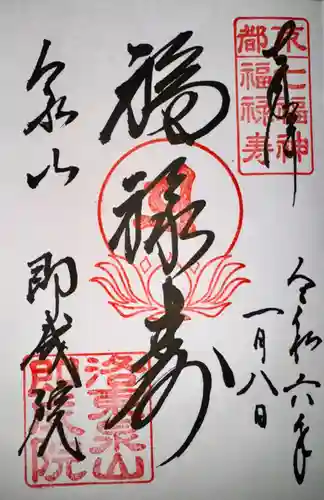 奉拝
京七福神
都福禄寿
令和六年
一月八日
福禄寿
泉山
即成院
洛東泉山
即成院